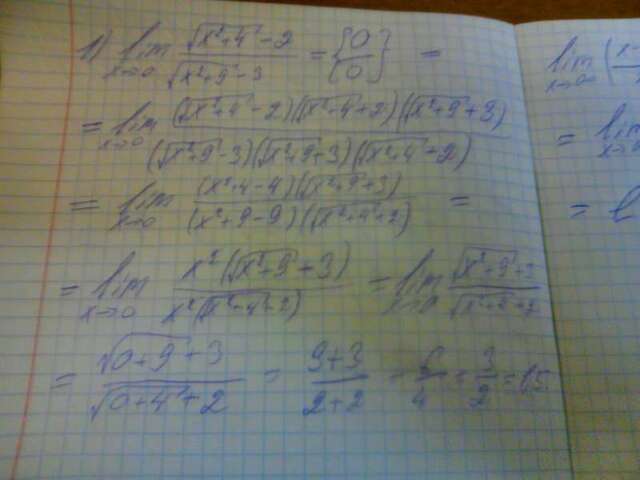 1) lim x→0 (√(x²+4) - 2)/(√(x²+9) - 3) = {0/0} =
= lim x→0 (√(x²+4) - 2)(√(x²+4) + 2)(√(x²+9) + 3)/(√(x²+9) - 3)(√(x²+9) + 3)(√(x²+4) + 2)
= lim x→0 (x²+4-4)(√(x²+9) + 3)/(x²+9-9)(√(x²+4) + 2) =
= lim x→0 x²(√(x²+9) + 3)/x²(√(x²+4) + 2) = lim x→0 (√(x²+9) + 3)/(√(x²+4) + 2)
= (√(0+9) + 3)/(√(0+4) + 2) = (9+3)/(2+2) = 6/4 = 3/2 = 1,5
lim x→∞
= lim
=